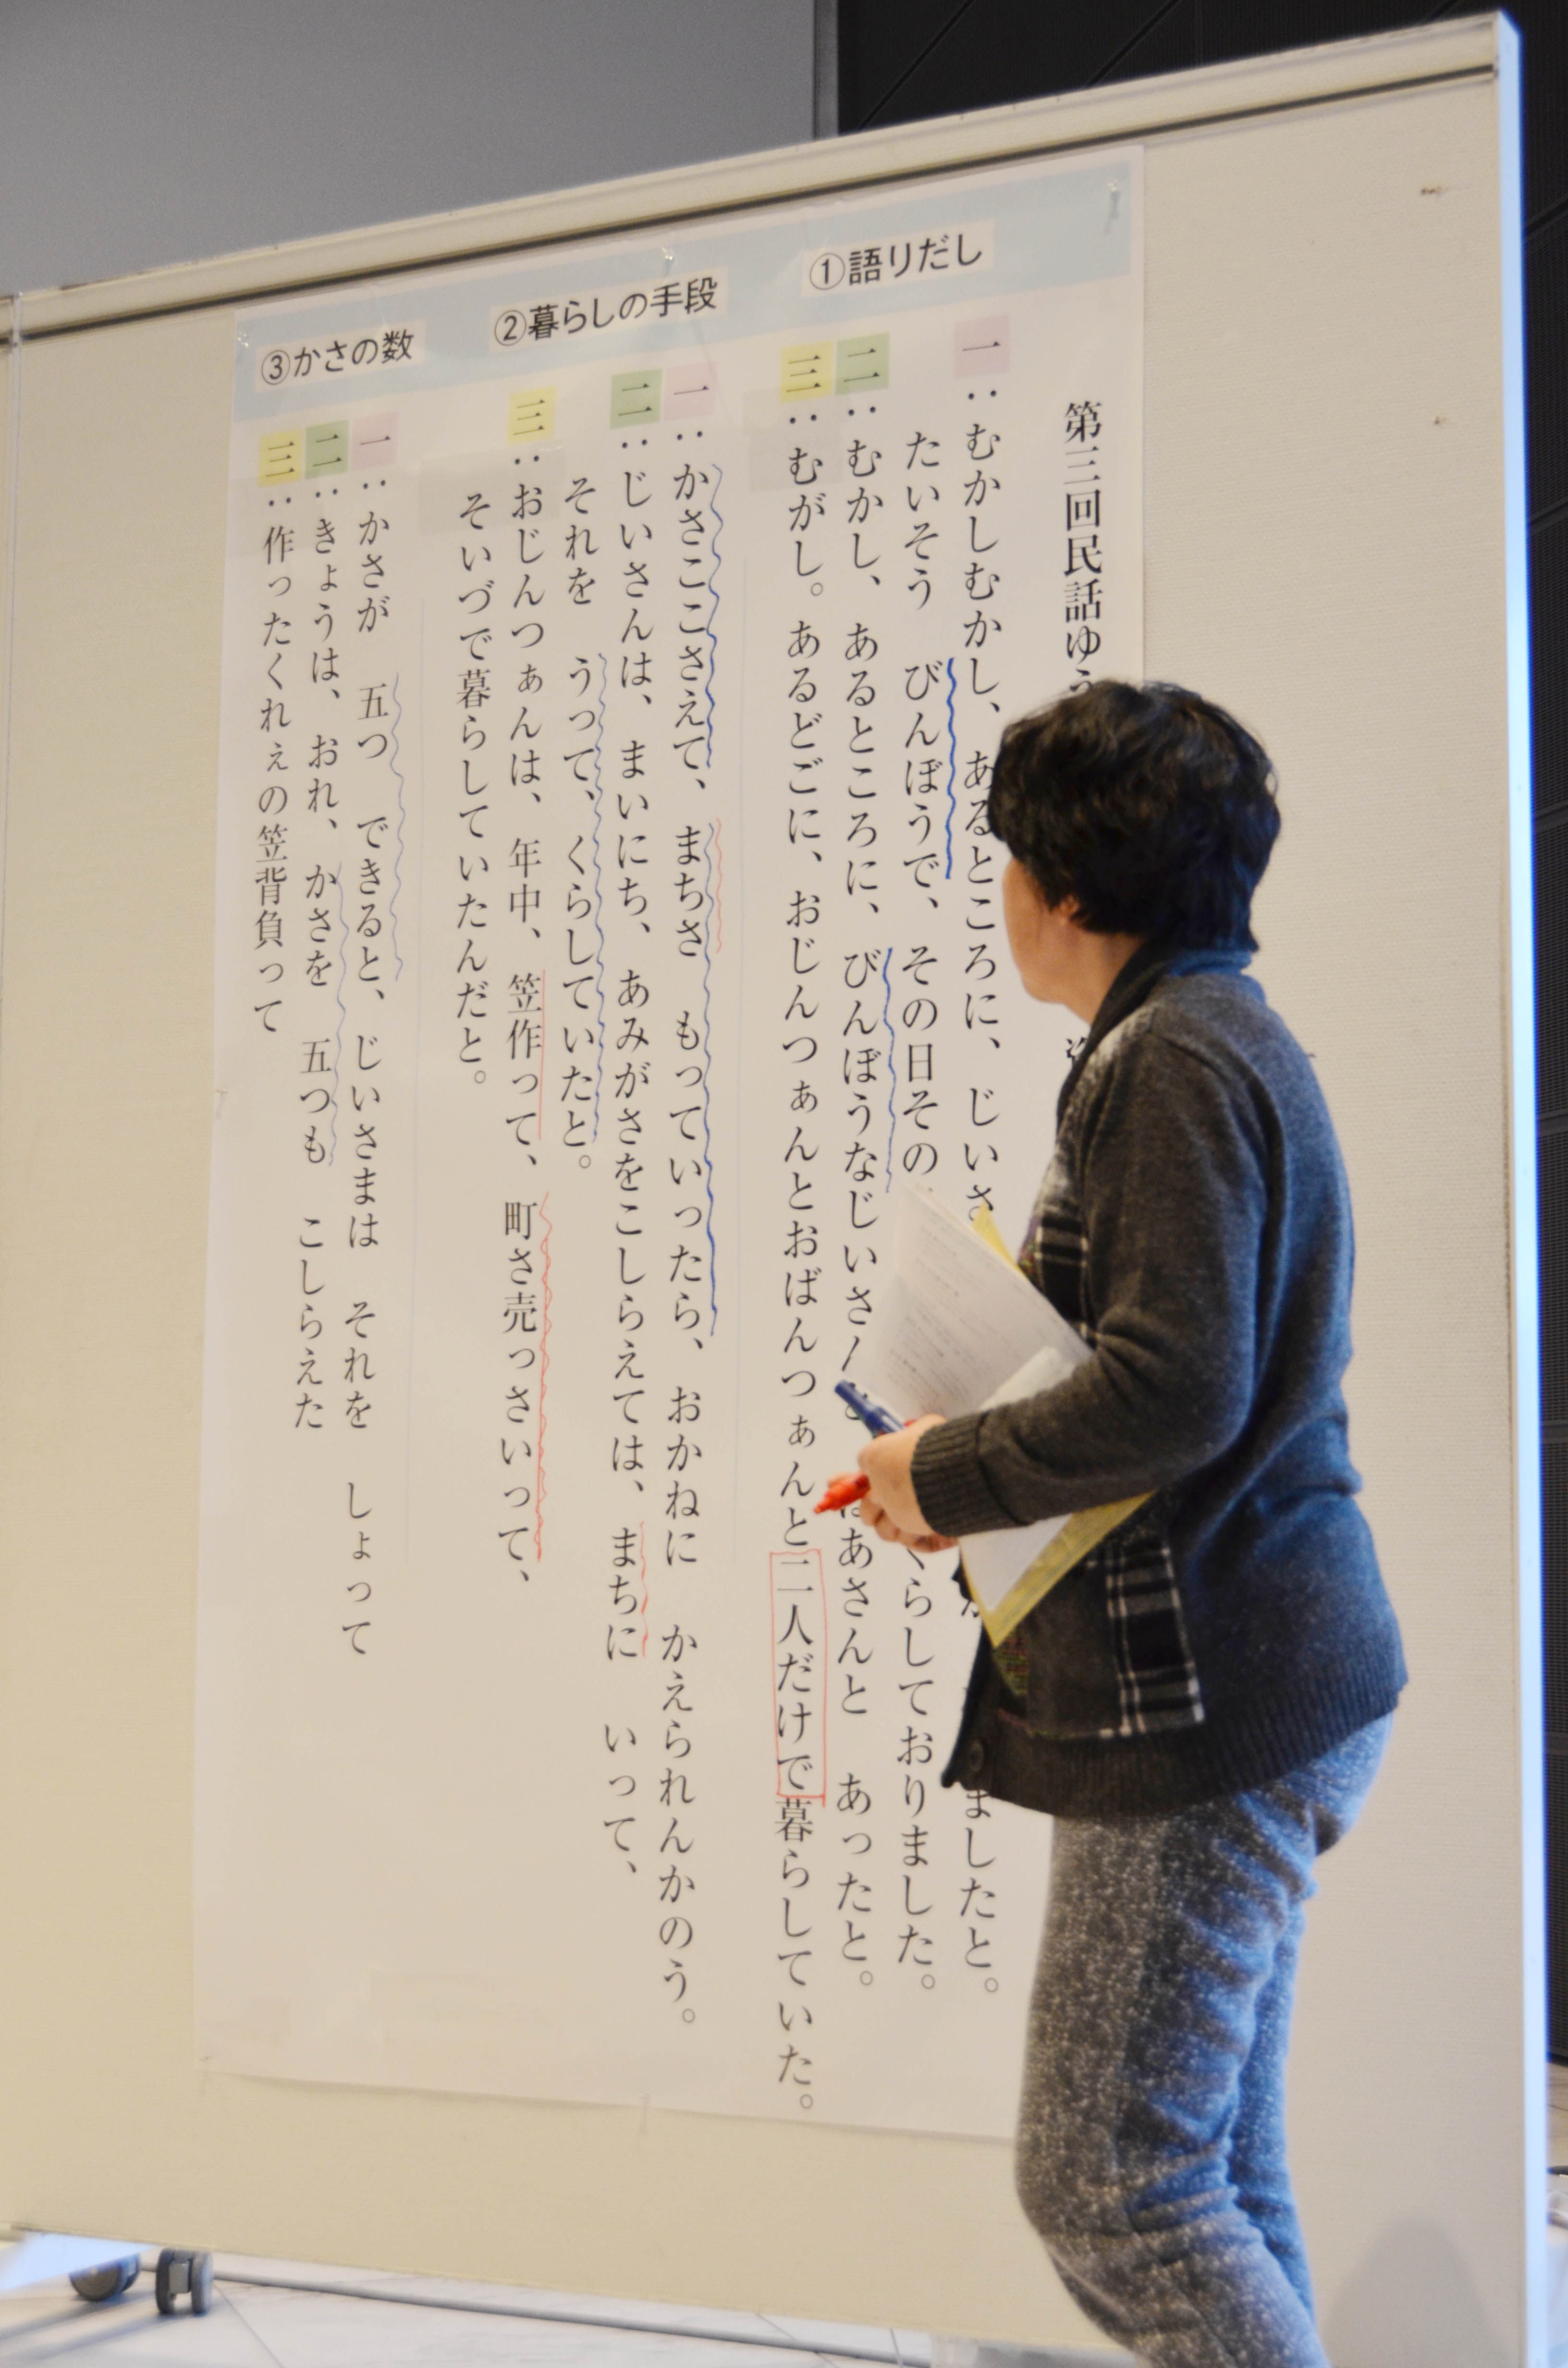 第三回民話ゆう
①語りだし
一：むかしむかし、あるところに、じいさ ましたと。
たいそう　びんぼうで、その日その くらしておりました。
二：むかし、あるところに、びんぼうなじいさんと ばあさんと　あったと。
三：むがし。あるどごに、おじんつぁんとおばんつぁんと二人だけで暮らしていた。
②暮らしの手段
一：かさここさえて、まちさ　もっていったら、おかねに　かえられんかのう。
二：じいさんは、まいにち、あみがさをこしらえては、まちに　いって、
それを　うって、くらしていたと。
三：おじんつぁんは、年中、笠作って、町さ売っさいって、
そいづで暮らしていたんだと。
③かさの数
一：かさが　五つ　できると、じいさまは　それを　しょって
二：きょうは、おれ、かさを　五つも　こしらえた
三：作ったくれぇの笠背負って